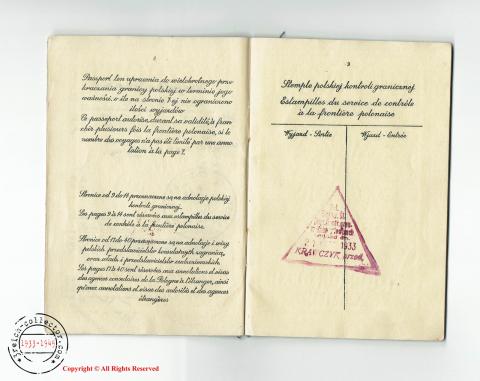 8
Passport ten uprawnia do wielokrotnego prze-
kraczania granicy polskiej w terminie jego
ważności, o ile na stronie 7 ej nie ograniczono
ilości wyjazdów
Ce passeport autorise, durant sa validité, à fran-
chir plusieurs fois la frontière polonaise, si le
nombre des voyages n'a pas été limité par une anno-
tation à la page 7.
Stronice od 9 do 14 przeznaczone są na adnotacje polskiej
kontroli granicznej.
Les pages 9 à 14 sont réservées aux estampilles du service
de contrôle à la frontière polonaise.
Stronice od 17 do 40 przeznaczone są na adnotacje i wizy
polskich przedstawicielstw konsularnych zagranicą,
oraz władz i przedstawicielstw cudzoziemskich.
Les pages 17 à 40 sont réservées aux annotations et visas
des agences consulaires de la Pologne à l'étranger, ainsi
qu'aux annotations et visas des autorités et des agences
étrangères
9
Stemple polskiej kontroli granicznej
Estampilles du service de contrôle
à la frontière polonaise
Wyjazd - Sortie
Wjazd - Entrée
1933
KRAWCZYK, przod.
3reich-collector.com
1933-1945
Copyright © All Rights Reserved